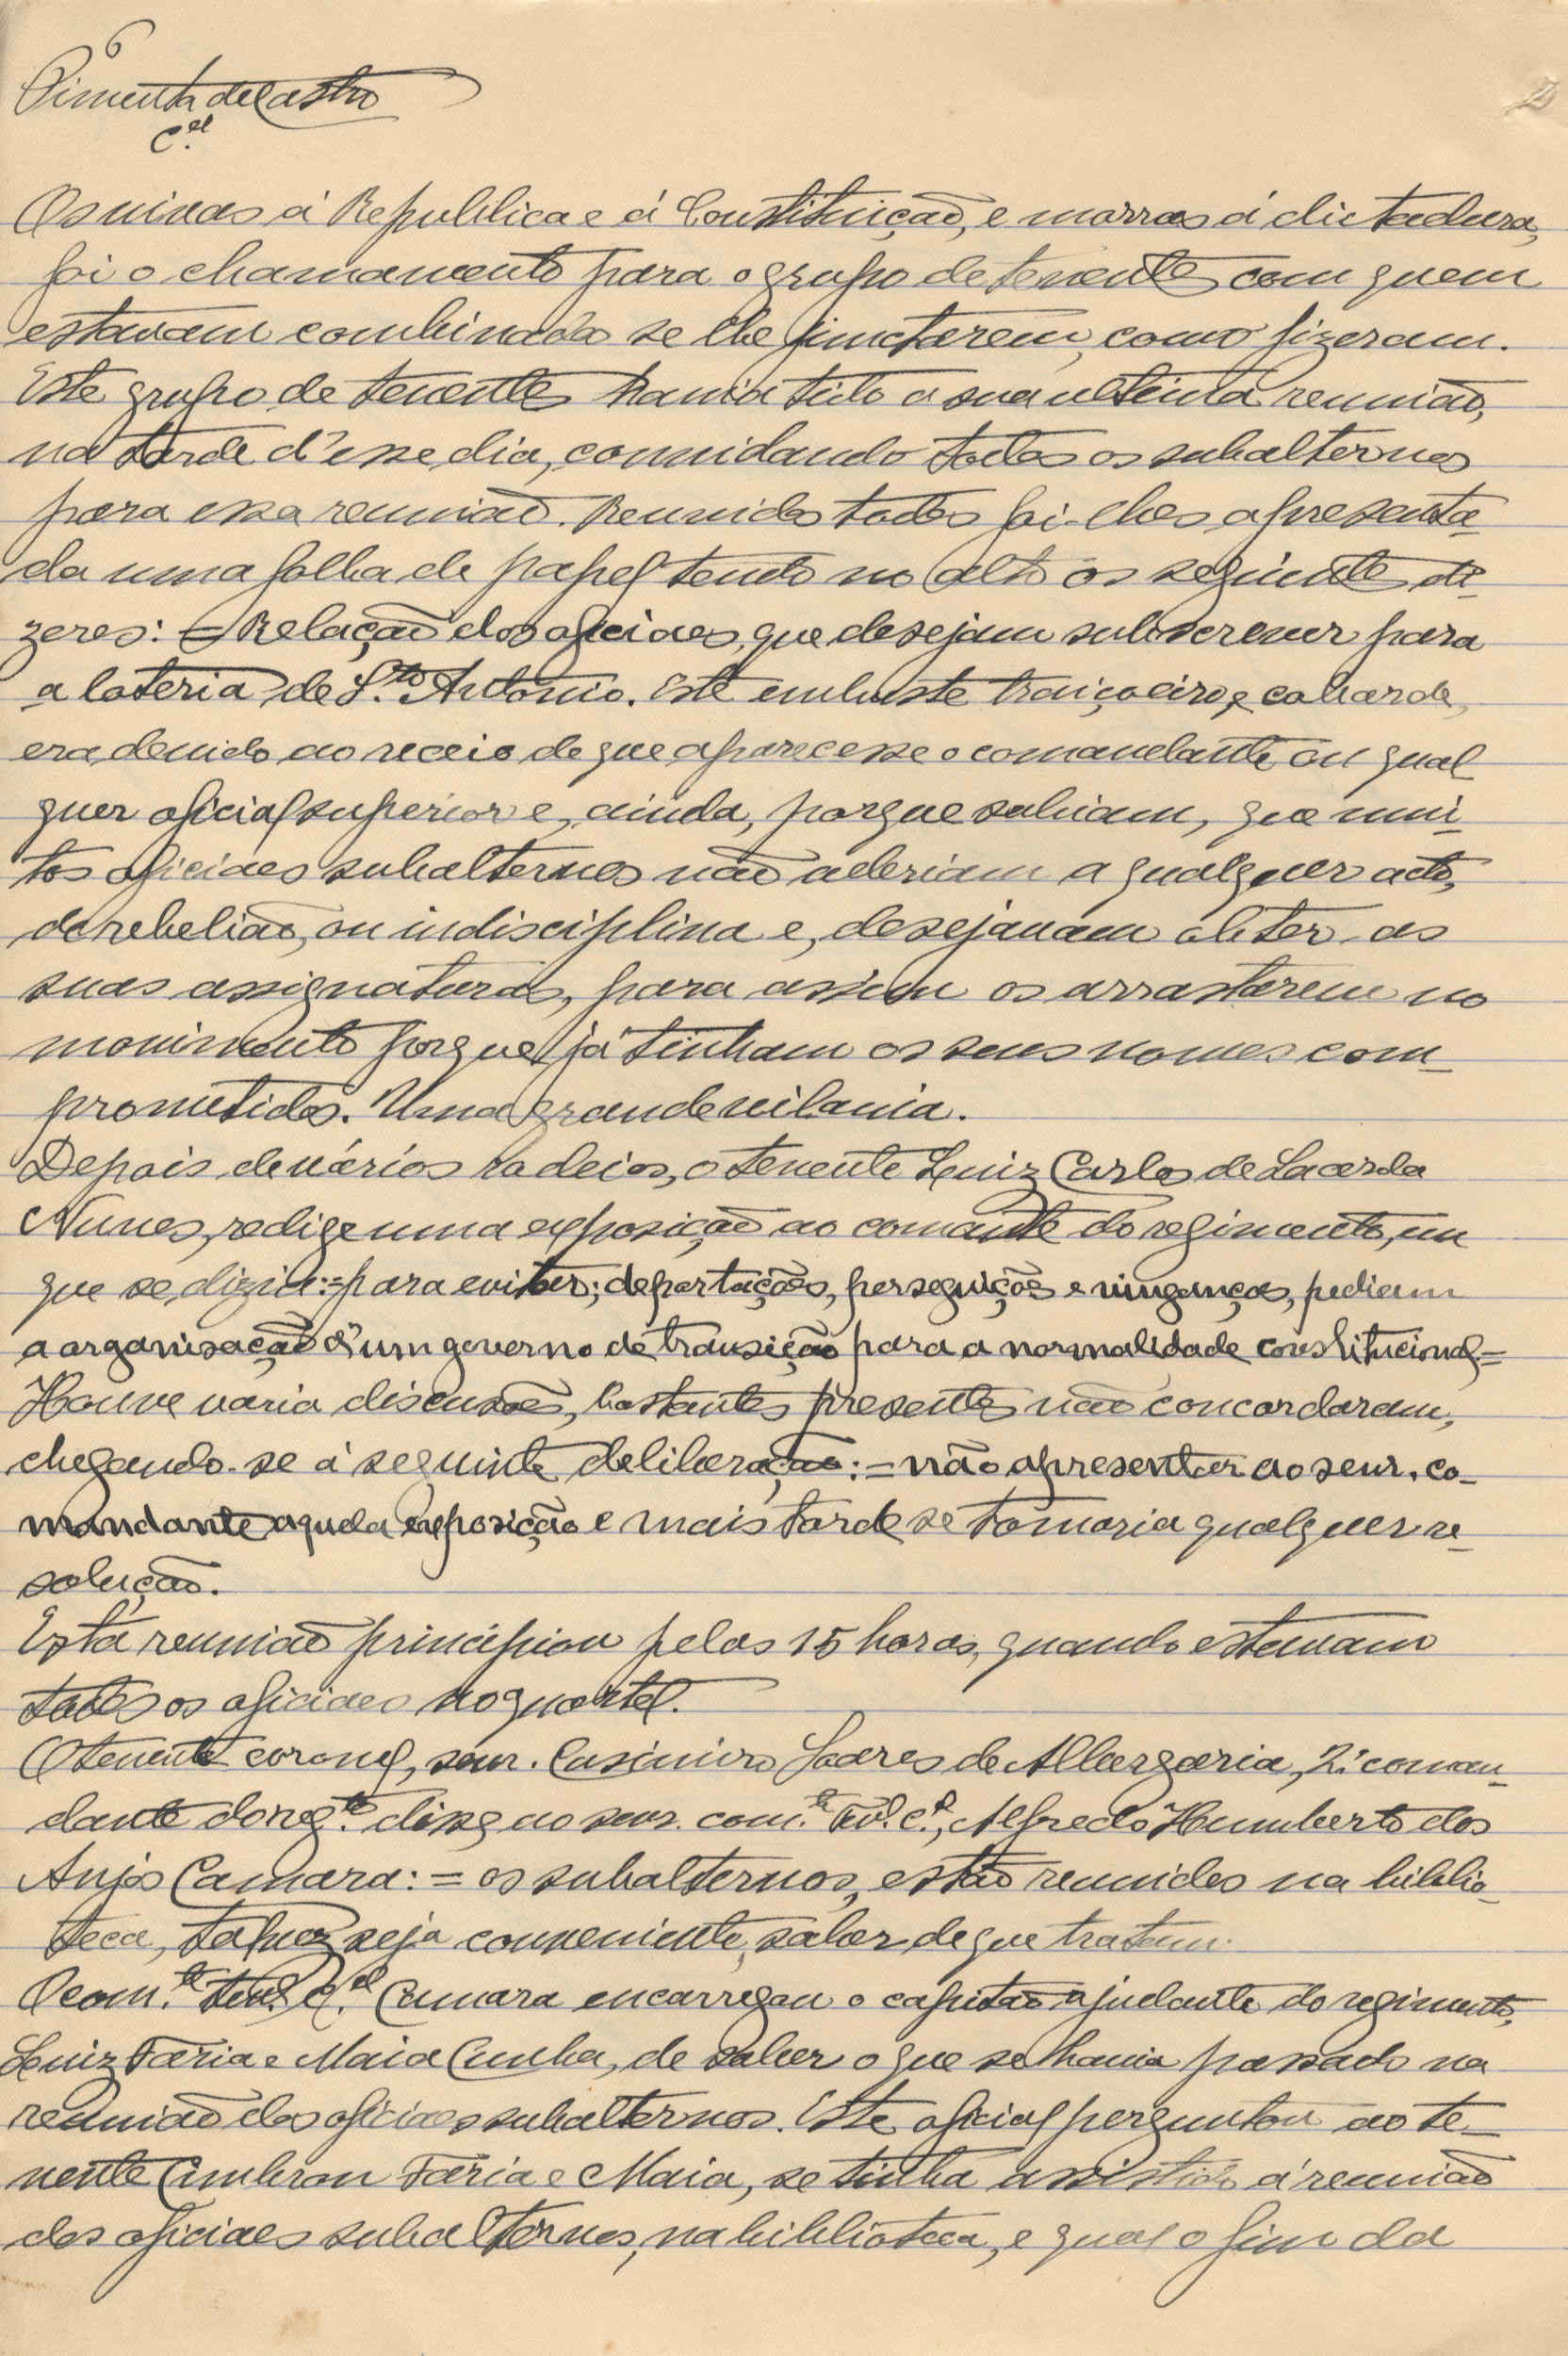 6
Pimenta de Castro
C.el
Os vivas á Republica e á Constituição, e morras á dictadura,
foi o chamamento para o grupo de tenentes com quem
estavam combinados se lhe junctarem, como fizeram.
Este grupo de tenentes havia tido a sua ultima reunião,
na tarde d'esse dia, convidando todos os subalternos
para essa reunião. Reunidos todos foi-lhes apresenta-
da uma folha de papel tendo no alto os seguintes di-
zeres: = Relação dos oficiaes, que desejam subscrever para
a loteria de S.to Antonio. Este embuste traiçoeiro e cobarde,
era devido ao receio de que aparecesse o comandante ou qual-
quer oficial superior e, ainda, porque sabiam, que mui-
tos oficiaes subalternos não adeririam a qualquer acto,
de rebelião, ou indisciplina e, desejavam obter as
suas assignaturas, para assim os arrastarem no
movimento porque já tinham os seus nomes com-
prometidos. Uma grande vilania.
Depois de vários rodeios, o tenente Luiz Carlos de Lacerda
Nunes, redige uma exposição ao comante do regimento, em
que se dizia: = para evitar; deportações, perseguições e vinganças, pediam
a organisação d'um governo de transição para a normalidade constitucional=
Houve varia discussões, bastantes presentes não concordaram,
chegando-se á seguinte deliberação: = não apresentar ao senr. co-
mandante aquela exposição e mais tarde se tomaria qualquer re-
solução.
Esta reunião principiou pelas 15 horas, quando estavam
todos os oficiaes no quartel.
O tenente coronel, senr. Casimiro Soares de Albergaria, 2.º coman-
dante do reg.to disse ao senr. com.te ten. C.el, Alfredo Humberto dos
Anjos Camara: = os subalternos, estão reunidos na biblio-
teca, talvez seja conveniente, saber de que tratam.
O com.te ten. C.el Camara encarregou o capitão ajudante do regimento,
Luiz Faria e Maia Cunha, de saber o que se havia passado na
reunião dos oficiaes subalternos. Este oficial perguntou ao te-
nente Cimbron Faria e Maia, se tinha assistido á reunião
dos oficiaes subalternos, na biblioteca, e qual o fim da